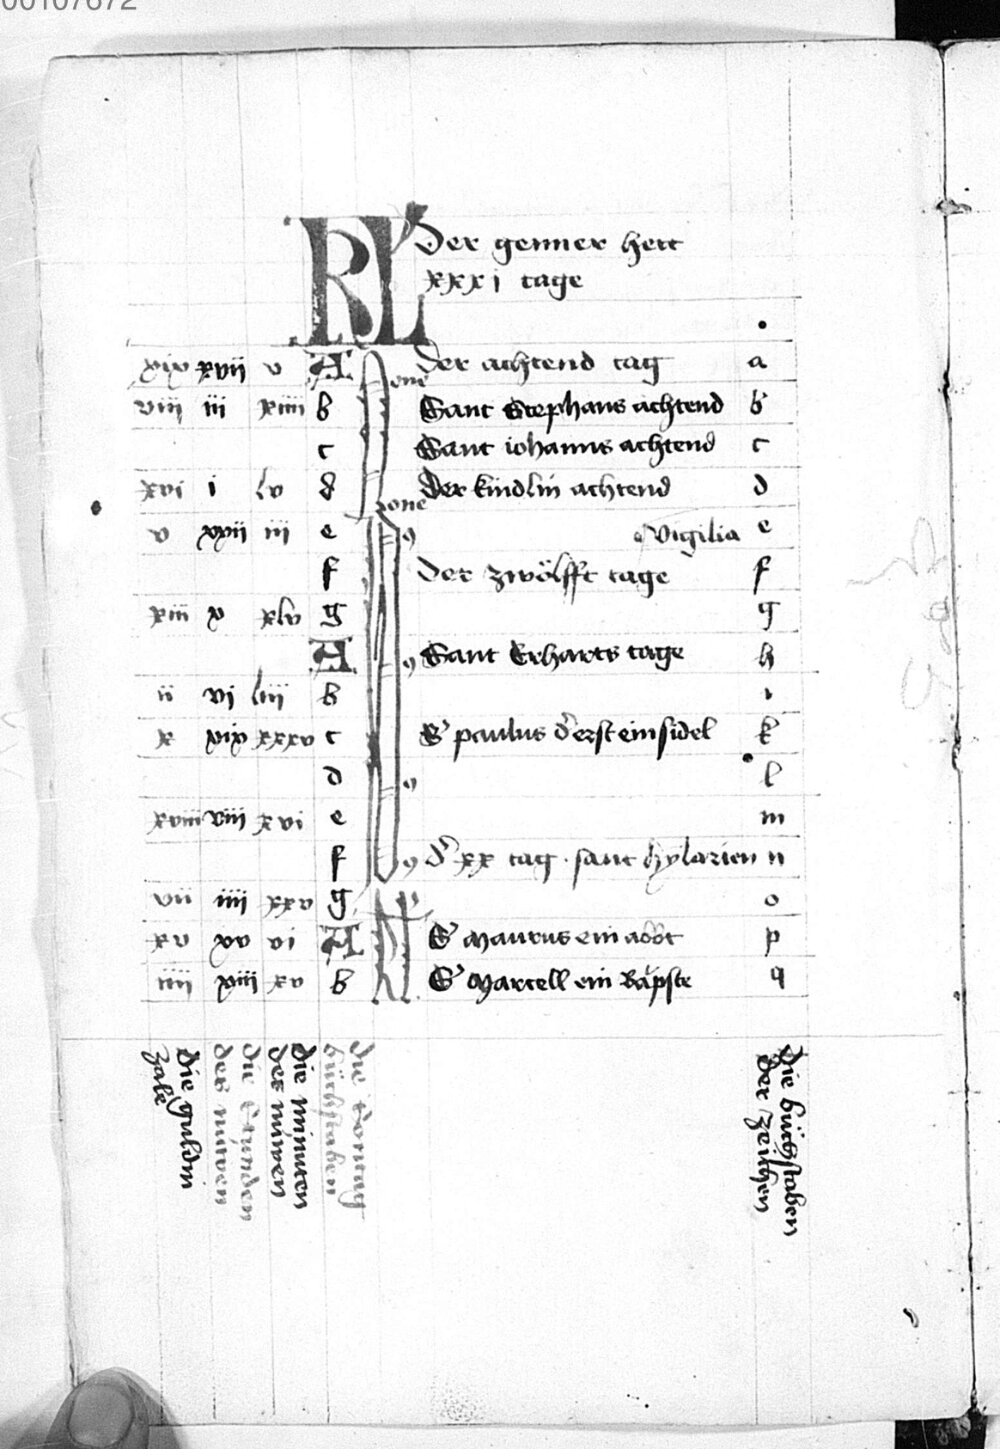 00107672
KL Der genner hett
xxxi tage
xix xvii v A der achtend tag a
viii iii xiiii b Sant Stephans achtend b
c Sant iohanns achtend c
xvi i lv d Der kindlin achtend d
v xxii iii e Vigilia e
f Der zwölfft tage f
xiii x xlv g g
A Sant Erharts tage h
ii vi liii b i
x xix xxxv c S' paulus d' erst einsidel k
d l
xviii viii xvi e m
f d' xx tag . sant hylarien n
vii iiii xxv g o
xv xv vi A S' Maurus ein abbt p
iiii xiii xv b S' Marcell ein Bäpste q
die guldin
zale
die Stunden
der nüwen
die minuten
der nüwen
die Sonntag
büchstaben
die büchstaben
der zeichen